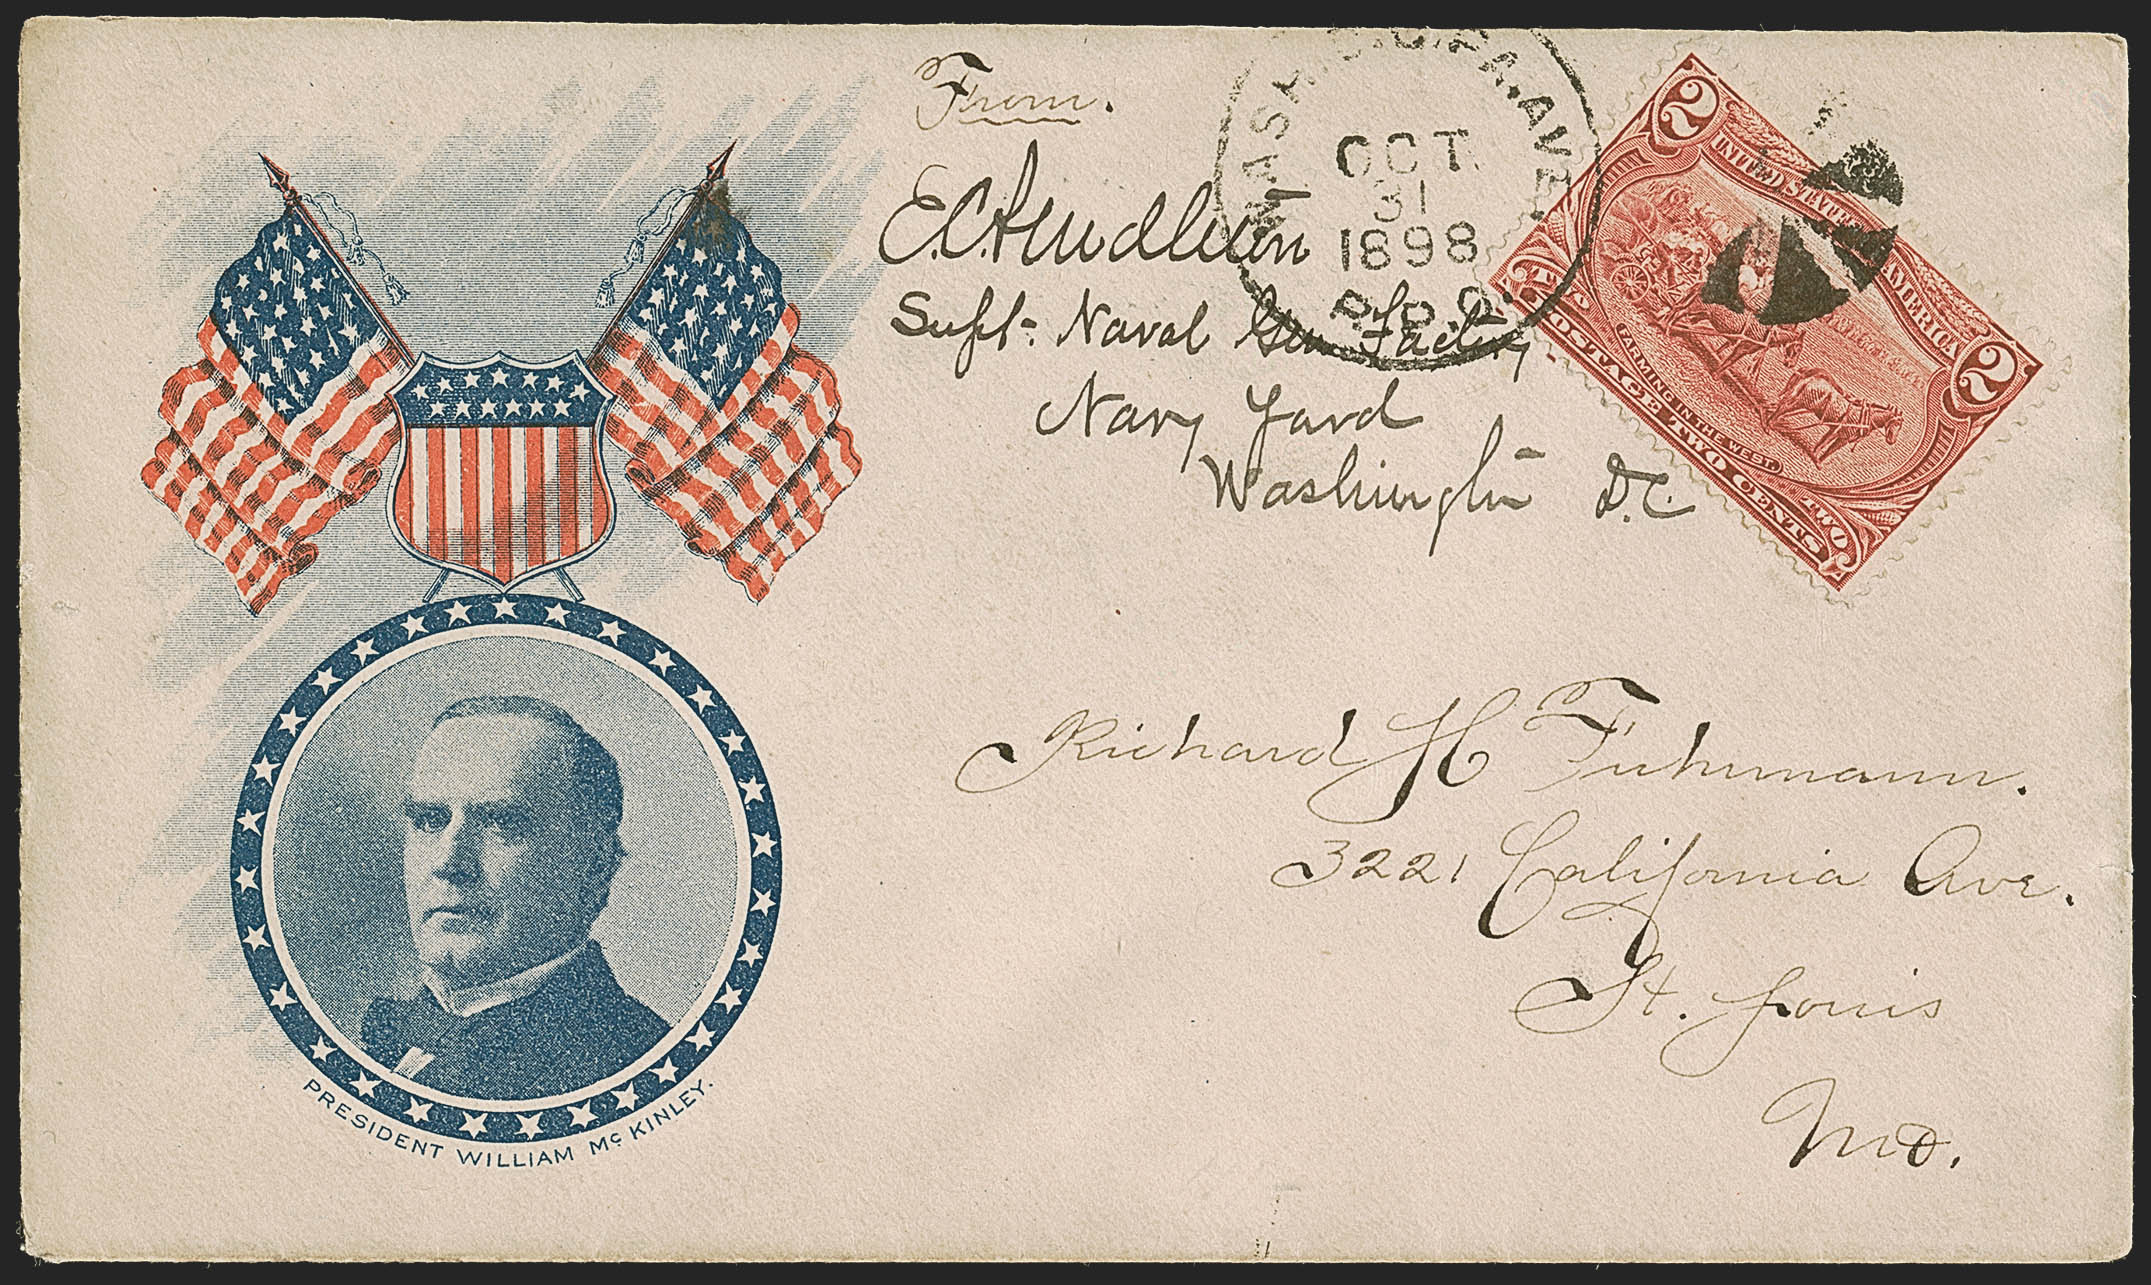 From.
E.C. Pendleton
Supt. Naval Gun Factory
Navy Yard
Washington D.C.
WASH. D.C. PA. AVE.
OCT
31
1898
2
UNITED STATES OF AMERICA
2
2
TWO
FARMING IN THE WEST.
POSTAGE TWO CENTS
TWO
Richard H Fuhrmann.
3221 California Ave.
St. Louis
Mo.
PRESIDENT WILLIAM McKINLEY.